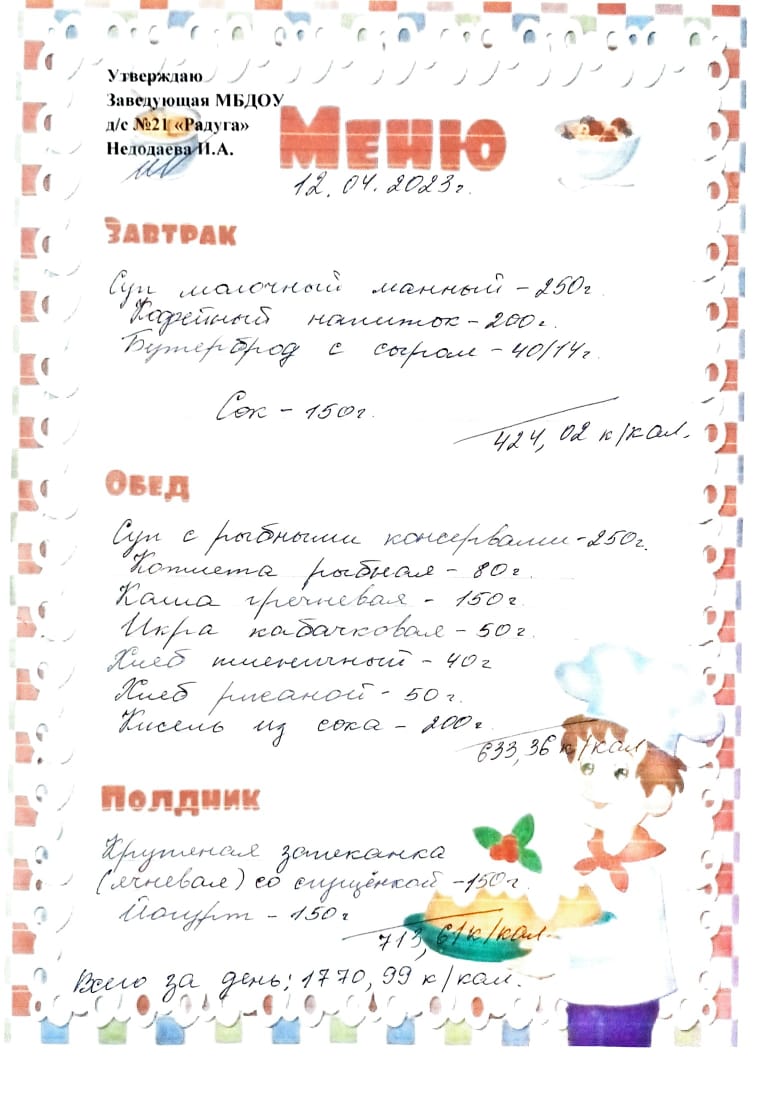 Утверждаю
Заведующая МБДОУ
д/с №21 «Радуга»
Недодаева И.А.
Меню
12.04.2023г.
Завтрак
Суп молочный манный - 250г.
Кофейный напиток - 200г.
Бутерброд с сыром - 40/14г.
Сок - 150г.
424,02 к/кал.
Обед
Суп с рыбными консервами - 250г.
Котлета рыбная - 80г.
Каша гречневая - 150г.
Икра кабачковая - 50г.
Хлеб пшеничный - 40г
Хлеб ржаной - 50г.
Кисель из сока - 200г.
633,36 к/кал
Полдник
Крупяная запеканка
(ячневая) со сгущёнкой - 150г.
Йогурт - 150г
713,61 к/кал.
Всего за день: 1770,99 к/кал.